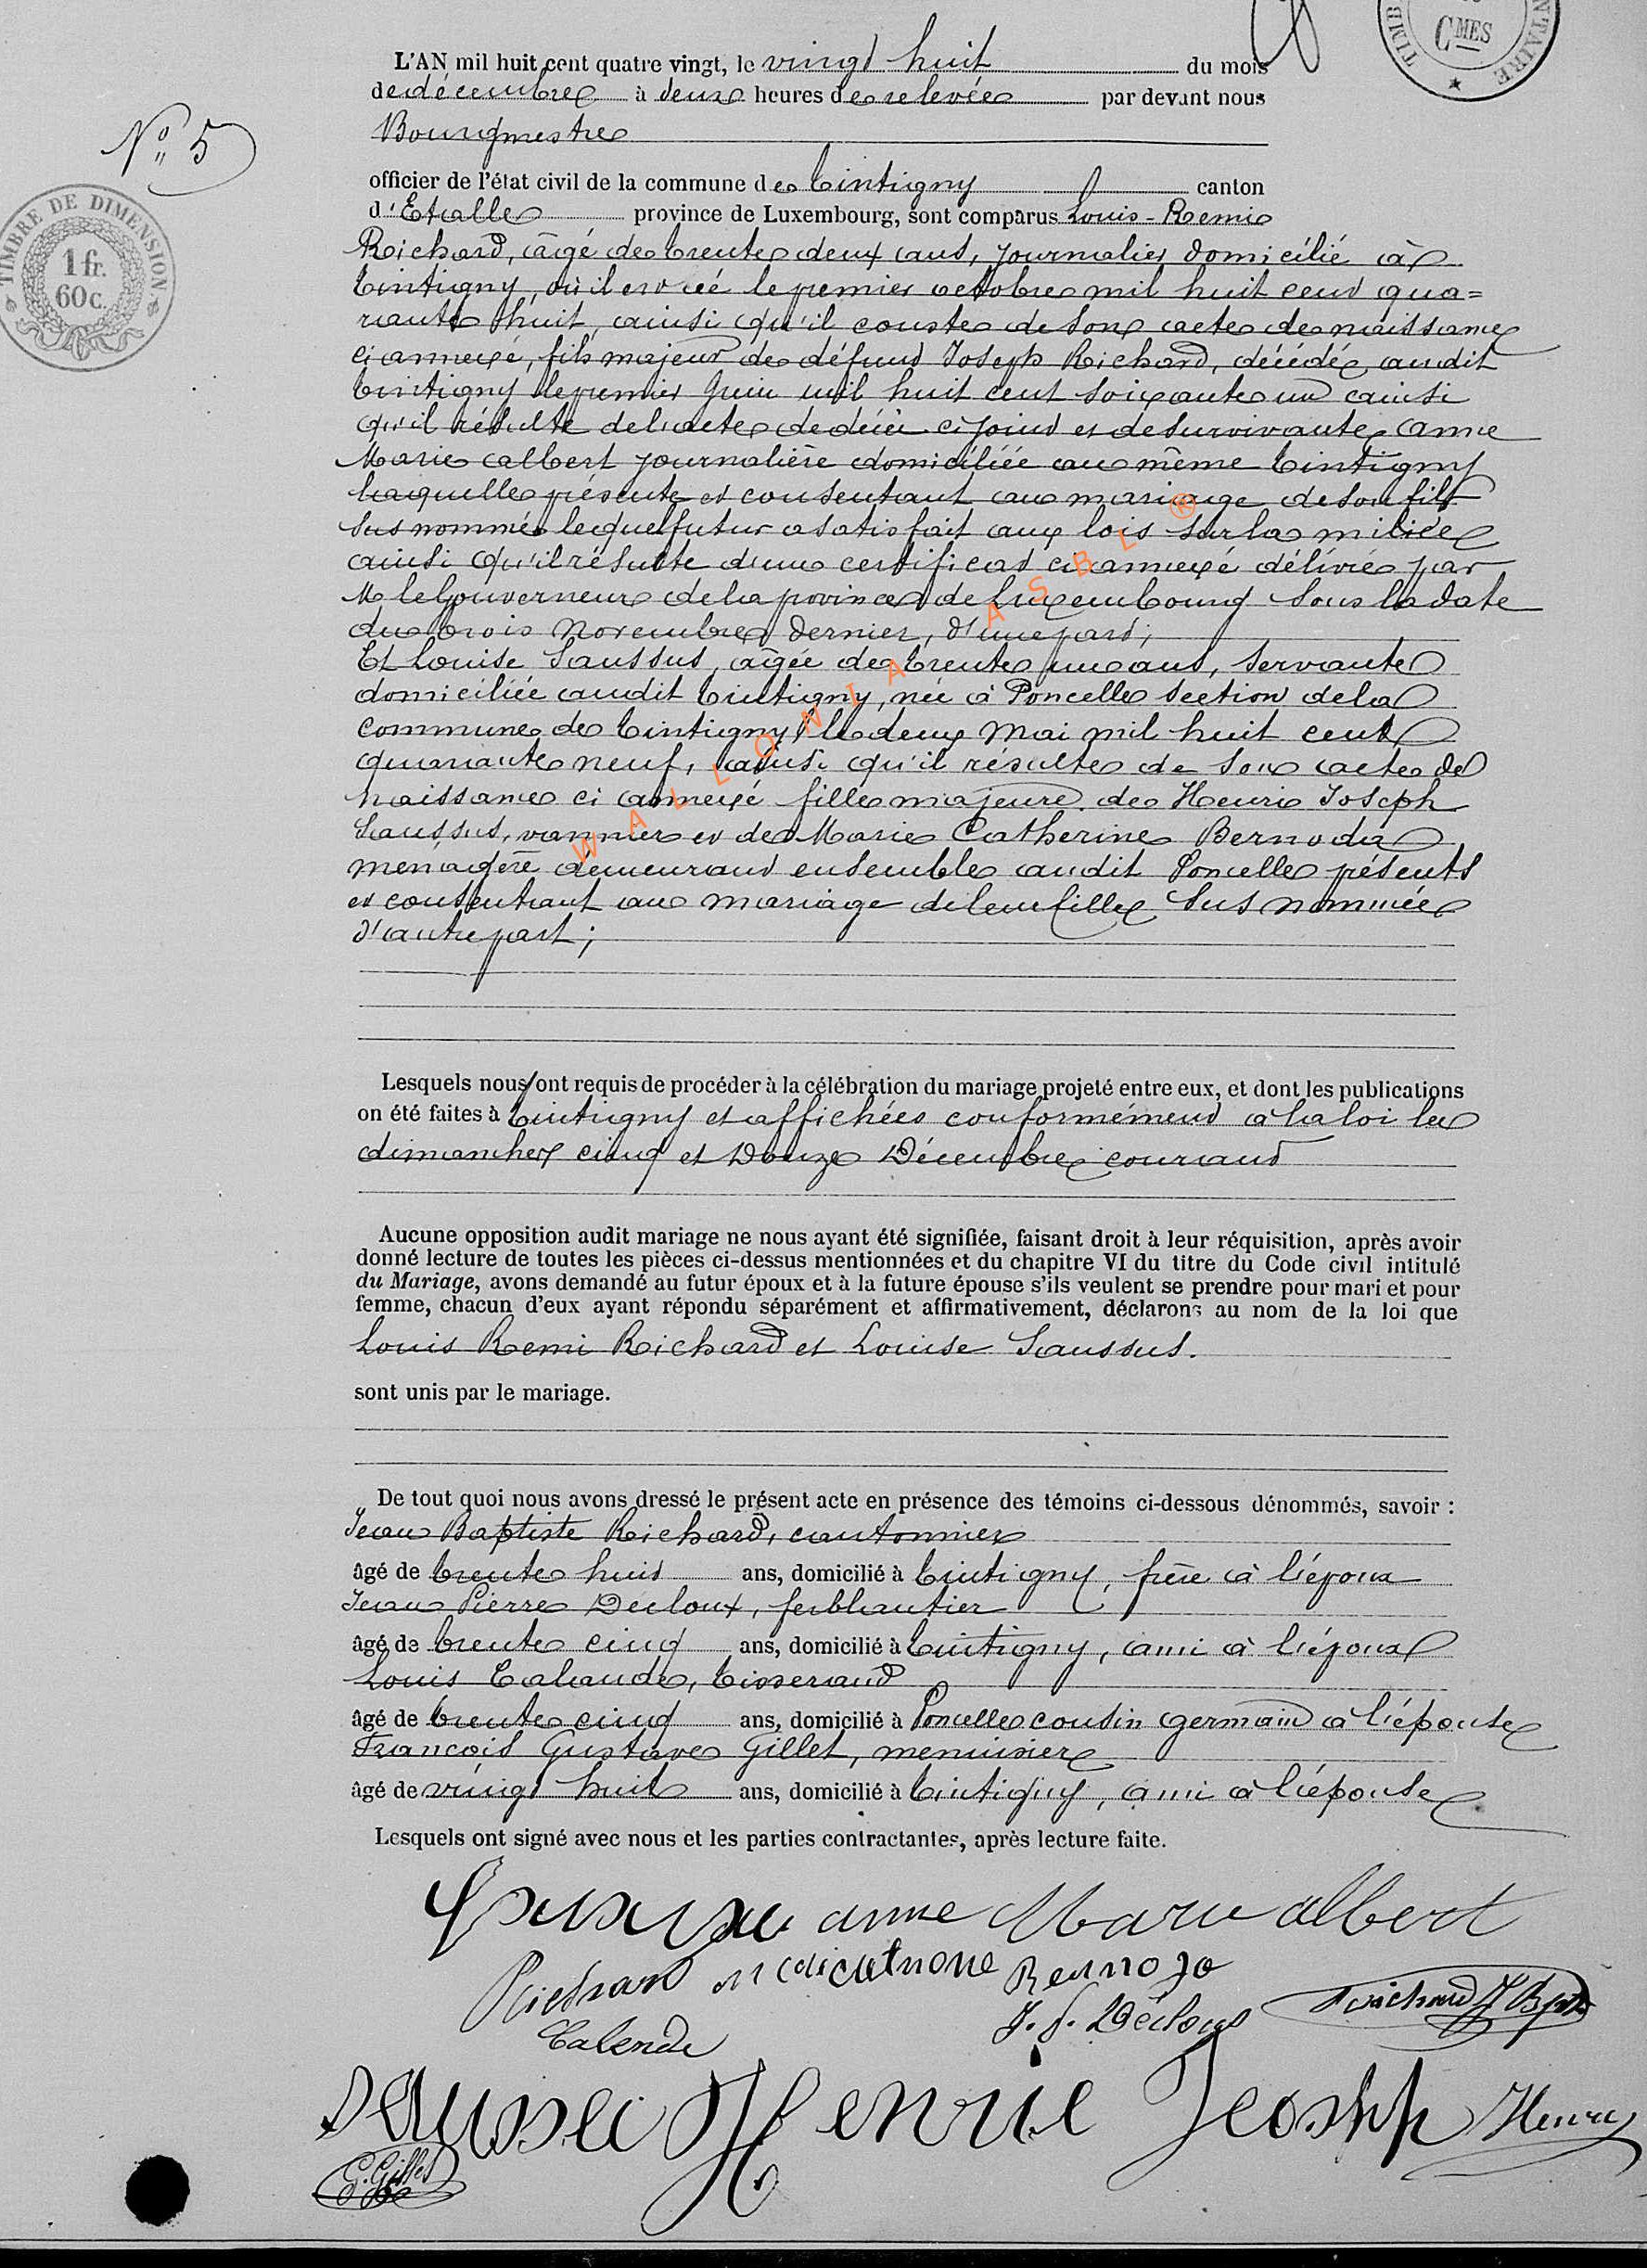 TIMBRE
CMES
NTAIRE
L'AN mil huit cent quatre vingt, le vingt huit du mois
de décembre à deux heures de relevée par devant nous
Bourgmestre
No 5
officier de l'état civil de la commune de Tintigny canton
d'Etalle province de Luxembourg, sont comparus Louis-Remi
TIMBRE DE DIMENSION
1 fr.
60 c.
Richard, âgé de trente deux ans, journalier domicilié à
Tintigny, où il est né le premier octobre mil huit cent qua=
rante huit, ainsi qu'il conste de son acte de naissance
ci annexé, fils majeur de défunt Joseph Richard, décédé audit
Tintigny le premier Juin mil huit cent soixante un ainsi
qu'il résulte de l'acte de décès ci joint et de survivante Anne
Marie Albert journalière domiciliée au même Tintigny
laquelle présente et consentant au mariage de son fils
sus nommé lequel futur a satisfait aux lois sur la milice
ainsi qu'il résulte d'un certificat ci annexé délivré par
M le Gouverneur de la province de Luxembourg sous la date
du trois Novembre dernier, d'une part;
Et Louise Saussus, âgée de trente un ans, servante
domiciliée audit Tintigny, née à Poncelle section de la
commune de Tintigny le deux Mai mil huit cent
quarante neuf, ainsi qu'il résulte de son acte de
naissance ci annexé fille majeure de Henri Joseph
Saussus, vannier et de Marie Catherine Bernoda
menagère demeurant ensemble audit Poncelle présents
et consentant au mariage de leur fille sus nommée
d'autre part;
WALLONIA ASBL ®
Lesquels nous ont requis de procéder à la célébration du mariage projeté entre eux, et dont les publications
on été faites à Tintigny et affichées conformément à la loi les
dimanches cinq et Douze Décembre courant
Aucune opposition audit mariage ne nous ayant été signifiée, faisant droit à leur réquisition, après avoir
donné lecture de toutes les pièces ci-dessus mentionnées et du chapitre VI du titre du Code civil intitulé
du Mariage, avons demandé au futur époux et à la future épouse s'ils veulent se prendre pour mari et pour
femme, chacun d'eux ayant répondu séparément et affirmativement, déclarons au nom de la loi que
Louis Remi Richard et Louise Saussus.
sont unis par le mariage.
De tout quoi nous avons dressé le présent acte en présence des témoins ci-dessous dénommés, savoir :
Jean Baptiste Richard, cantonnier
âgé de trente huit ans, domicilié à Tintigny, frère à l'époux
Jean Pierre Decloux, ferblantier
âgé de trente cinq ans, domicilié à Tintigny, ami à l'époux
Louis Calande, tisserand
âgé de trente cinq ans, domicilié à Poncelle cousin germain à l'épouse
François Gustave Gillet, menuisier
âgé de vingt huit ans, domicilié à Tintigny, ami à l'épouse
Lesquels ont signé avec nous et les parties contractantes, après lecture faite.
anne Marie albert
Richard
J. P. Decloux Richard J Bpte
Calende
Henrie Jeoshph Henry
G. Gillet